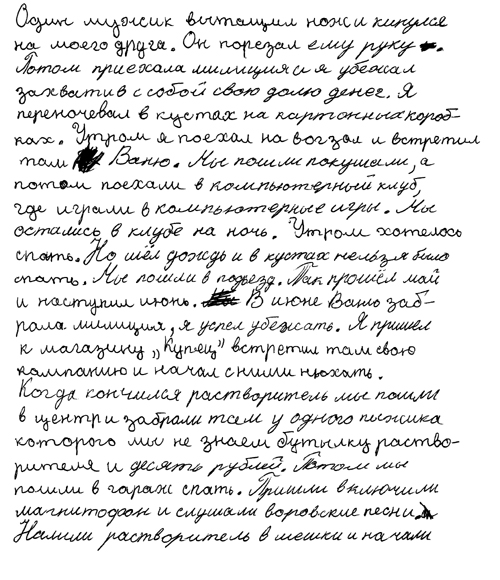 Один мужик вытащил нож и кинулся
на моего друга. Он порезал ему руку.
Потом приехала милиция и я убежал
захватив с собой свою долю денег. Я
переночевал в кустах на картонных короб-
ках. Утром я поехал на вогзал и встретил
там Ваню. Мы пошли покушали, а
потом поехали в компьютерный клуб,
где играли в компьютерные игры. Мы
остались в клубе на ночь. Утром хотелось
спать. Но шёл дождь и в кустах нельзя было
спать. Мы пошли в подъезд. Так прошёл май
и наступил июнь. В июне Ваню заб-
рала милиция, я успел убежать. Я пришел
к магазину „Купец" встретил там свою
компанию и начал с ними нюхать.
Когда кончился растворитель мы пошли
в центр и забрали там у одного пыжика
которого мы не знаем бутылку раство-
рителя и десять рублей. Потом мы
пошли в гараж спать. Пришли включили
магнитофон и слушали воровские песни.
Налили растворитель в мешки и начали